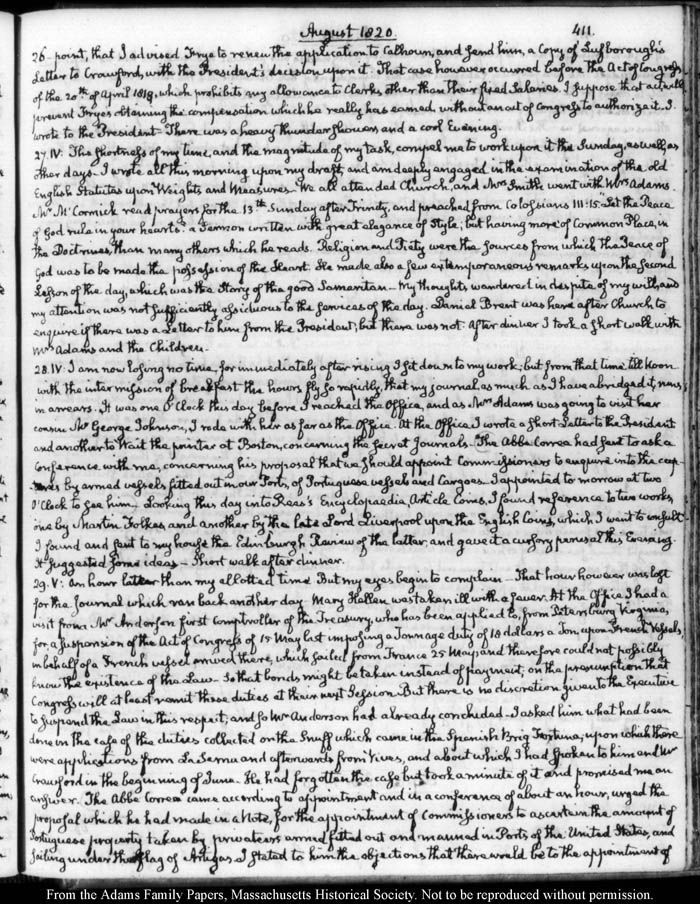 August 1820.
411.
26 point, that I advised Frye to renew the application to Calhoun, and send him, a Copy of Lufborough's
Letter to Crawford, with the President's decision upon it. That case however occurred before the Act of Congress
of the 20th of April 1818, which prohibits my allowance to Clerks other than their fixed Salaries. I suppose that act will
prevent Frye's obtaining the compensation which he really has earned, without an act of Congress to authorize it. I
wrote to the President. There was a heavy thunder shower and a cool Evening.
27. IV: The shortness of my time, and the magnitude of my task, compel me to work upon it the Sunday, as well as
other days. I wrote all this morning upon my draft, and am deeply engaged in the examination of the old
English Statutes upon Weights and Measures. We all attended Church, and Mrs Smith went with Mrs Adams.
Mr McCormick read prayers for the 13th Sunday after Trinity, and preached from Colossians III.15. Let the Peace
of God rule in your hearts: a Sermon written with great elegance of Style, but having more of Common Place, in
the Doctrines, than many others which he reads. Religion and Piety were the sources from which the Peace of
God was to be made the possession of the Heart. He made also a few extemporaneous remarks upon the second
Lesson of the day, which was the Story of the good Samaritan. My thoughts wandered in despite of my will, and
my attention was not sufficiently assiduous to the services of the day. Daniel Brent was here after Church to
enquire if there was a Letter to him from the President, but there was not. After dinner I took a short walk with
Mrs Adams and the Children.
28. IV: I am now losing no time, for immediately after rising I sit down to my work; but from that time till Noon
with the intermission of breakfast the hours fly so rapidly, that my journal as much as I have abridged it, runs
in arrears. It was one O'Clock this day before I reached the Office, and as Mrs Adams was going to visit her
cousin Mrs George Johnson, I rode with her as far as the Office. At the Office I wrote a short Letter to the President
and another to Wait the printer at Boston, concerning the secret Journals. The Abbé Correa had sent to ask a
Conference with me, concerning his proposal that we should appoint Commissioners to enquire into the cap-
tures by armed vessels fitted out in our Ports, of Portuguese vessels and Cargoes. I appointed to morrow at two
O'Clock to see him. Looking this day into Rees's Encyclopaedia, Article Coins, I found reference to two works,
one by Martin Folkes, and another by the late Lord Liverpool upon the English Coins, which I want to consult
I found and sent to my house the Edinburgh Review of the latter, and gave it a cursory perusal this Evening.
It suggested some ideas. Short walk after dinner.
29. V: An hour later than my allotted time. But my eyes begin to complain. That hour however was lost
for the Journal which ran back another day. Mary Hellen was taken ill with a fever. At the Office I had a
visit from Mr Anderson first Comptroller of the Treasury, who has been applied to, from Petersburg Virginia,
for a suspension of the Act of Congress of 15 May last imposing a Tonnage duty of 18 dollars a Ton, upon French Vessels,
in behalf of a French vessel arrived there, which sailed from France 25 May and therefore could not possibly
know the existence of the Law. So that bonds might be taken instead of payment, on the presumption that
Congress will at least remit those duties at their next Session. But there is no discretion given to the Executive
to suspend the Law in this respect, and so Mr Anderson had already concluded. I asked him what had been
done in the case of the duties collected on the Snuff which came in the Spanish Brig Fortuna, upon which there
were applications from La Serna and afterwards from Vives, and about which I had spoken to him and Mr
Crawford in the beginning of June. He had forgotten the case but took a minute of it and promised me an
answer. The Abbé Correa came according to appointment and in a conference of about an hour, urged the
proposal which he had made in a Note, for the appointment of Commissioners to ascertain the amount of
Portuguese property taken by privateers armed fitted out and manned in Ports of the United States, and
sailing under the flag of Artigas. I stated to him the objections that there would be to the appointment of
From the Adams Family Papers, Massachusetts Historical Society. Not to be reproduced without permission.